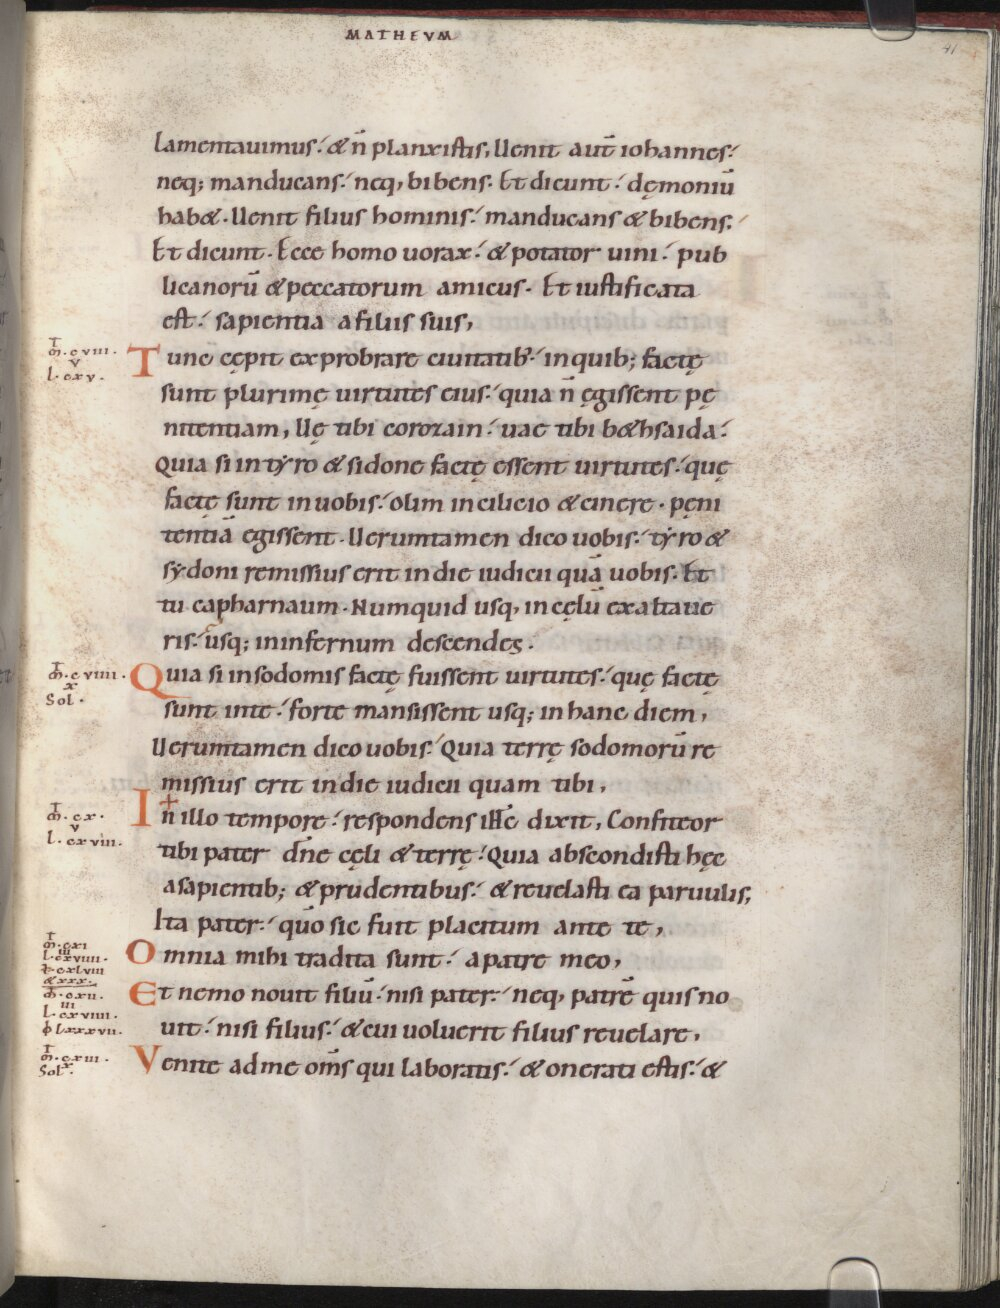 MATHEVM
41
lamentauimus. & n̄ planxistis, Uenit aut̄ iohannes.
neq; manducans. neq, bibens. Et dicunt. dęmoniū
hab&. Uenit filius hominis. manducans & bibens.
Et dicunt. Ecce homo uorax. & potator uini. pub
licanorū & peccatorum amicus. Et iustificata
est. sapientia a filiis suis,
m̄. cviii.
v
l. cxv.
Tunc cępit exprobrare ciuitatib'. in quib; factę
sunt plurimę uirtutes eius. quia n̄ ęgissent pę
nitentiam, Uę tibi corozain. uae tibi b&hsaida.
Quia si in tyro & sidone factę essent uirtutes. quę
factę sunt in uobis. olim in cilicio & cinere. pęni
tentiā egissent. Ueruntamen dico uobis. tyro &
sydoni remissius erit in die iudicii quā uobis. Et
tu capharnaum. Numquid usq, in cęlū exaltaue
ris. usq; in infernum descendes.
m̄. cviiii.
x
Sol.
Quia si in sodomis factę fuissent uirtutes. quę factę
sunt in te. forte mansissent usq; in hanc diem,
Ueruntamen dico uobis. Quia terrę sodomorū re
missius erit in die iudicii quam tibi,
m̄. cx.
v
l. cxviii.
In illo tempore. respondens ihc̄ dixit, Confiteor
tibi pater dn̄e cęli & terrę. Quia abscondisti hęc
a sapientib; & prudentibus. & reuelasti ea paruulis,
Ita pater. quō sic fuit placitum ante te,
m̄. cxi
iii
l. cxviiii.
cxlviii
&xxx.
Omnia mihi tradita sunt. a patre meo,
m̄. cxii.
iii
l. cxviiii.
φ lxxxvii.
Et nemo nouit filiū. nisi pater. neq, patrē quis no
uit. nisi filius. & cui uoluerit filius reuelare,
m̄. cxiii.
x
Sol.
Venite ad me om̄s qui laboratis. & onerati estis. &